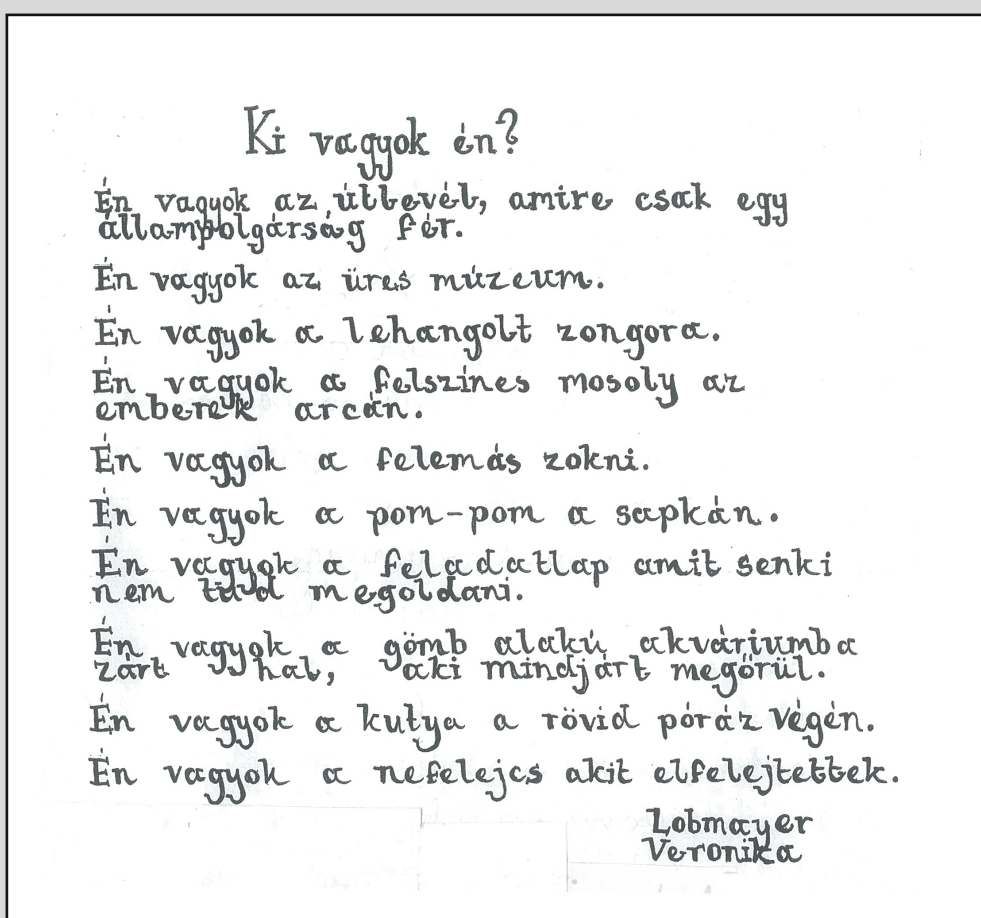 Ki vagyok én?
Én vagyok az útlevél, amire csak egy
állampolgárság fér.
Én vagyok az üres múzeum.
Én vagyok a lehangolt zongora.
Én vagyok a felszínes mosoly az
emberek arcán.
Én vagyok a felemás zokni.
Én vagyok a pom-pom a sapkán.
Én vagyok a feladatlap amit senki
nem tud megoldani.
Én vagyok a gömb alakú akváriumba
zárt hal, aki mindjárt megőrül.
Én vagyok a kutya a rövid póráz végén.
Én vagyok a nefelejcs akit elfelejtettek.
Lobmayer
Veronika